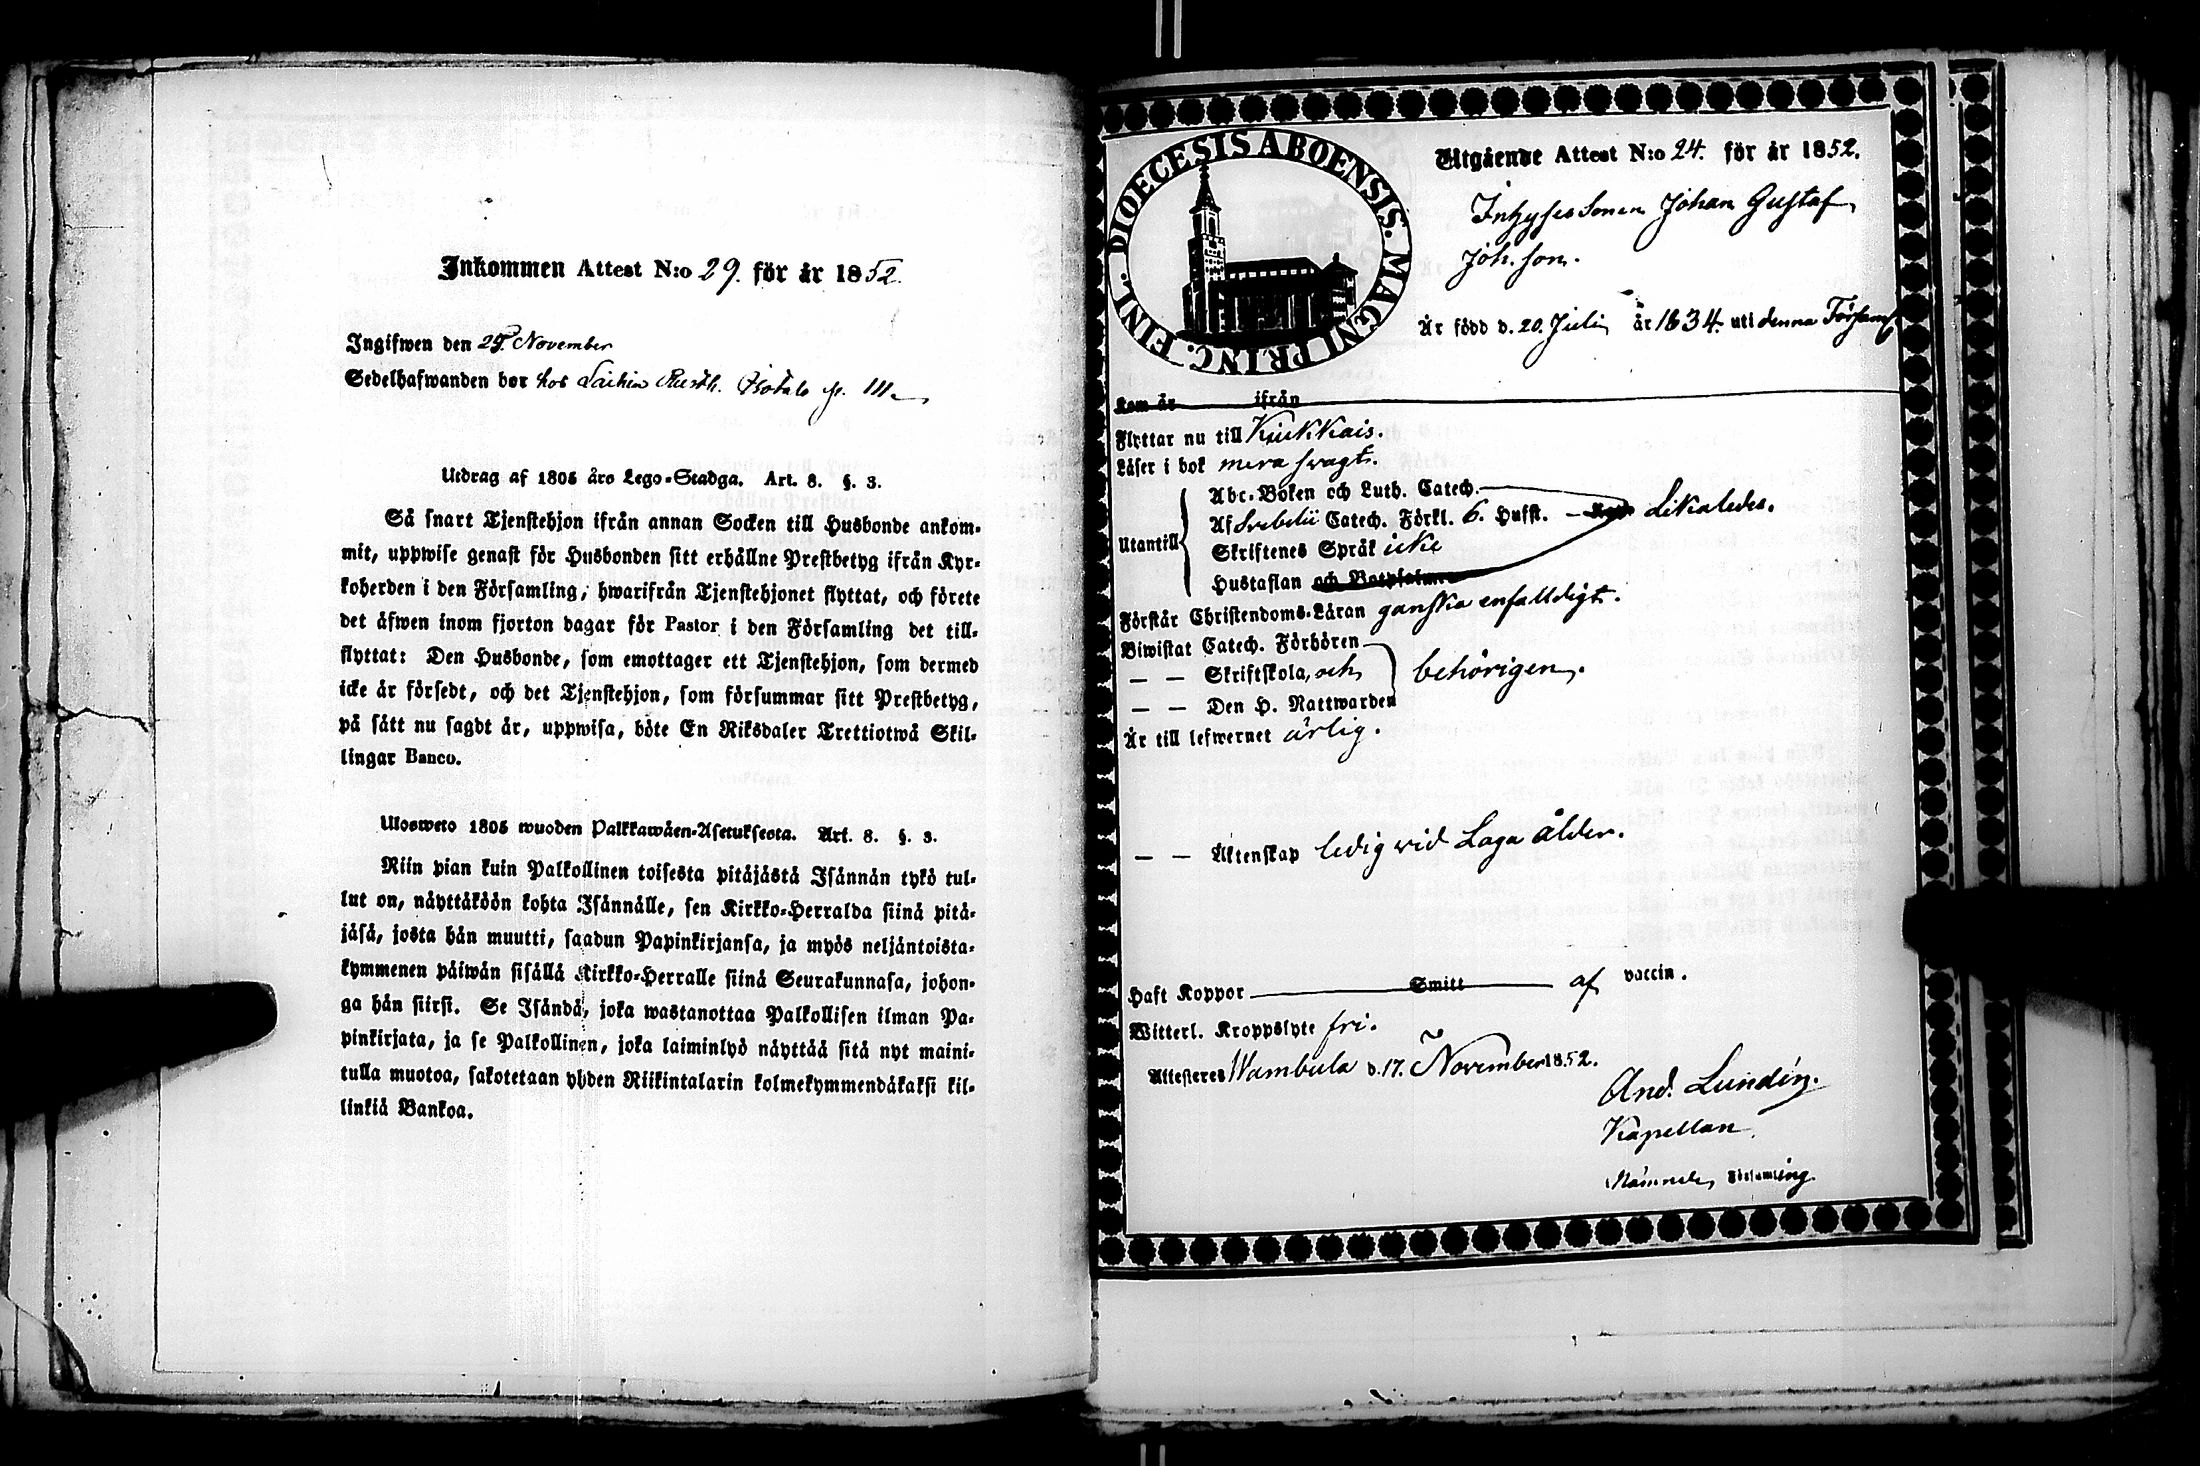 Inkommen Attest N:o 29. för år 1852.
Ingifwen den 29. November
Sedelhafwanden bor hos
Utdrag af 1805 års Lego-Stadga. Art. 8. §. 3.
Så snart Tjenstehjon ifrån annan Socken till Husbonde ankom-
mit, uppwise genast för Husbonden sitt erhållne Prestbetyg ifrån Kyr-
koherden i den Församling, hwarifrån Tjenstehjonet flyttat, och förete
det äfwen inom fjorton dagar för Pastor i den Församling det till-
flyttat: Den Husbonde, som emottager ett Tjenstehjon, som dermed
icke är försedt, och det Tjenstehjon, som försummar sitt Prestbetyg,
på sätt nu sagdt är, uppwisa, böte En Riksdaler Trettiotwå Skil-
lingar Banco.
Ulosweto 1805 wuoden Palkkawäen-Asetuksesta. Art. 8. §. 3.
Niin pian kuin Palkollinen toisesta pitäjästä Isännän tykö tul-
lut on, näyttäköön kohta Isännälle, sen Kirkko-Herralda siinä pitä-
jäsä, josta hän muutti, saadun Papinkirjansa, ja myös neljäntoista-
kymmenen päiwän sisällä Kirkko-Herralle siinä Seurakunnasa, johon-
ga hän siirsi. Se Isändä, joka wastanottaa Palkollisen ilman Pa-
pinkirjata, ja se Palkollinen, joka laiminlyö näyttää sitä nyt maini-
tulla muotoa, sakotetaan yhden Riikintalarin kolmekymmendäkaksi kil-
linkiä Bankoa.
DIOECESIS ABOENSIS. MAGNI PRINC. FINL.
Utgående Attest N:o 24. för år 1852.
Inhyses Sonen Johan Gustaf
Joh. son.
Är född d. 20. Juli år 1834. uti denna FörSaml
Kom år ifrån
Flyttar nu till Kiukkais.
Läser i bok mera swagt.
Abc-Boken och Luth. Catech.
Af Svebelii Catech. Förkl. 6. Hufst. Likaledes.
Utantill Skriftenes Språk icke
Hustaflan och Botpsalmerne
Förstår Christendoms-Läran ganska enfalldigt.
Biwistat Catech. Förhören
— — Skriftskola, och behörigen.
— — Den H. Nattwarden
Är till lefwernet ärlig.
— — Äktenskap ledig wid Laga ålder.
Haft Koppor Smitt af vaccin.
Witterl. Kroppslyte fri.
Attesteres Wambula d. 17. November 1852.
And. Lundén.
Kapellan
Församling